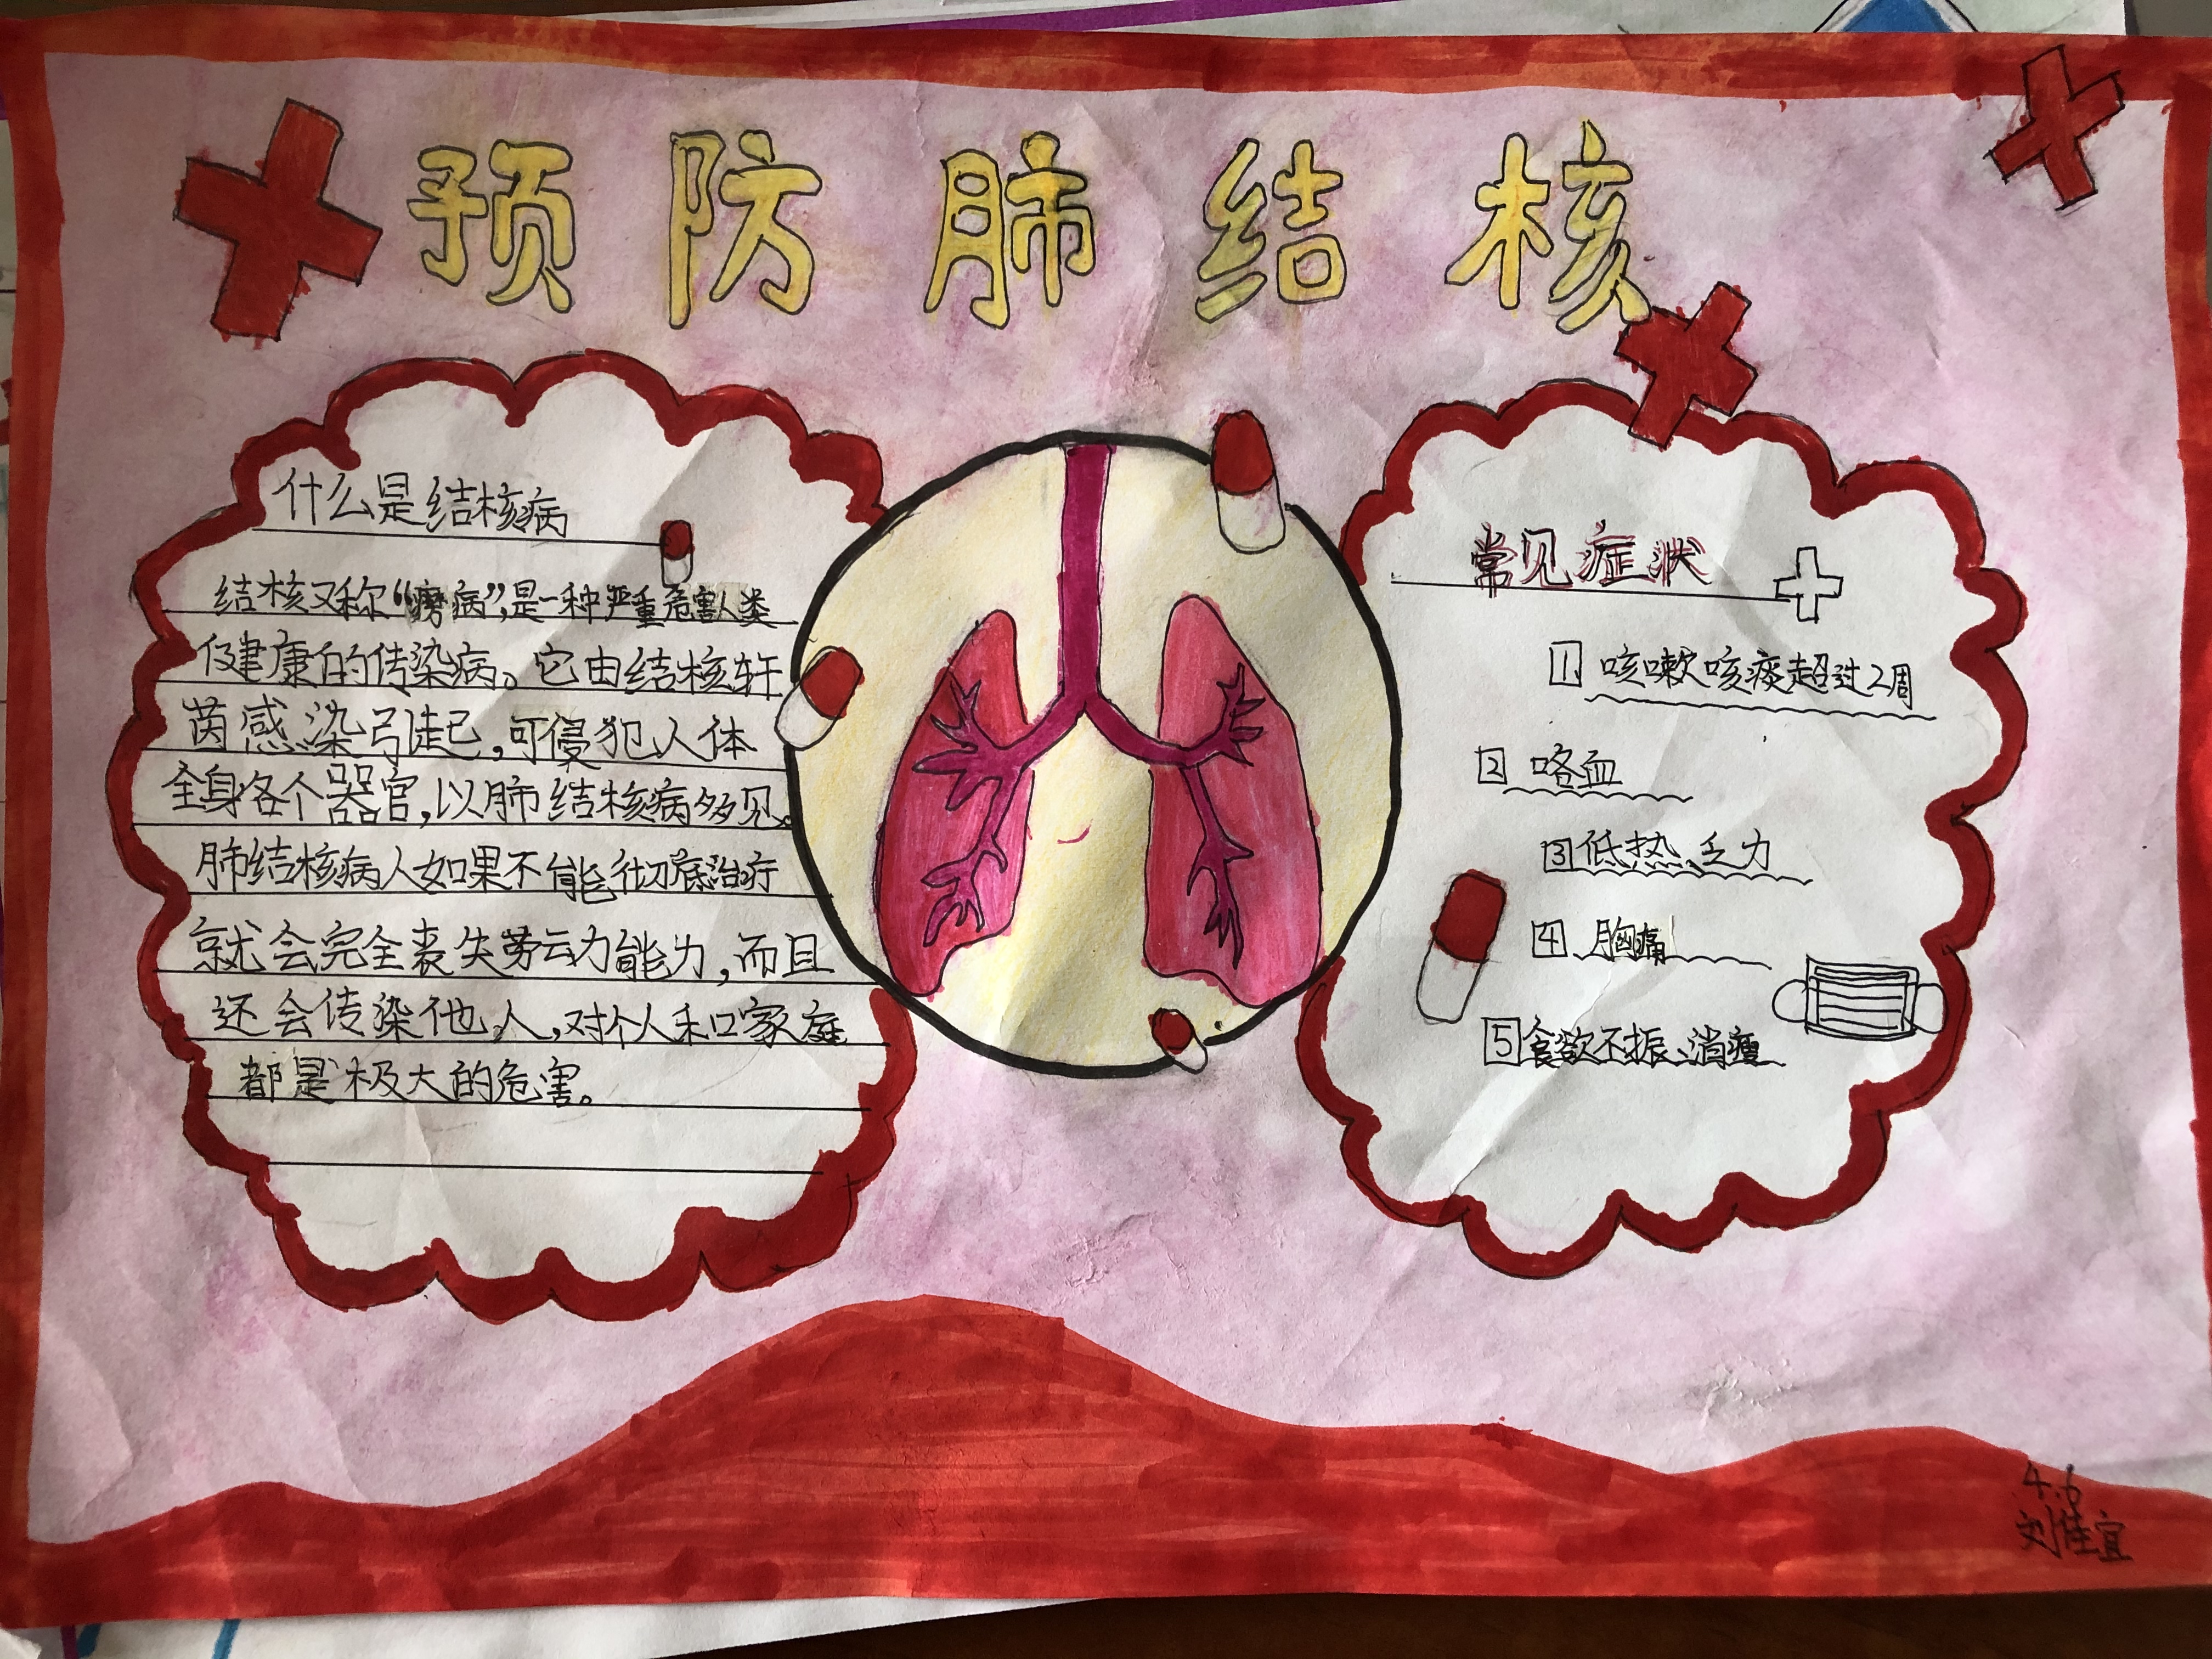 预防肺结核
什么是结核病
结核又称“痨病”,是一种严重危害人类
健康的传染病。它由结核杆
菌感染引起,可侵犯人体
全身各个器官,以肺结核病多见。
肺结核病人如果不能彻底治疗
就会完全丧失劳动力能力,而且
还会传染他人,对个人和家庭
都是极大的危害。
常见症状
1 咳嗽咳痰超过2周
2 咯血
3 低热、乏力
4 胸痛
5 食欲不振、消瘦
4.6
刘佳宜